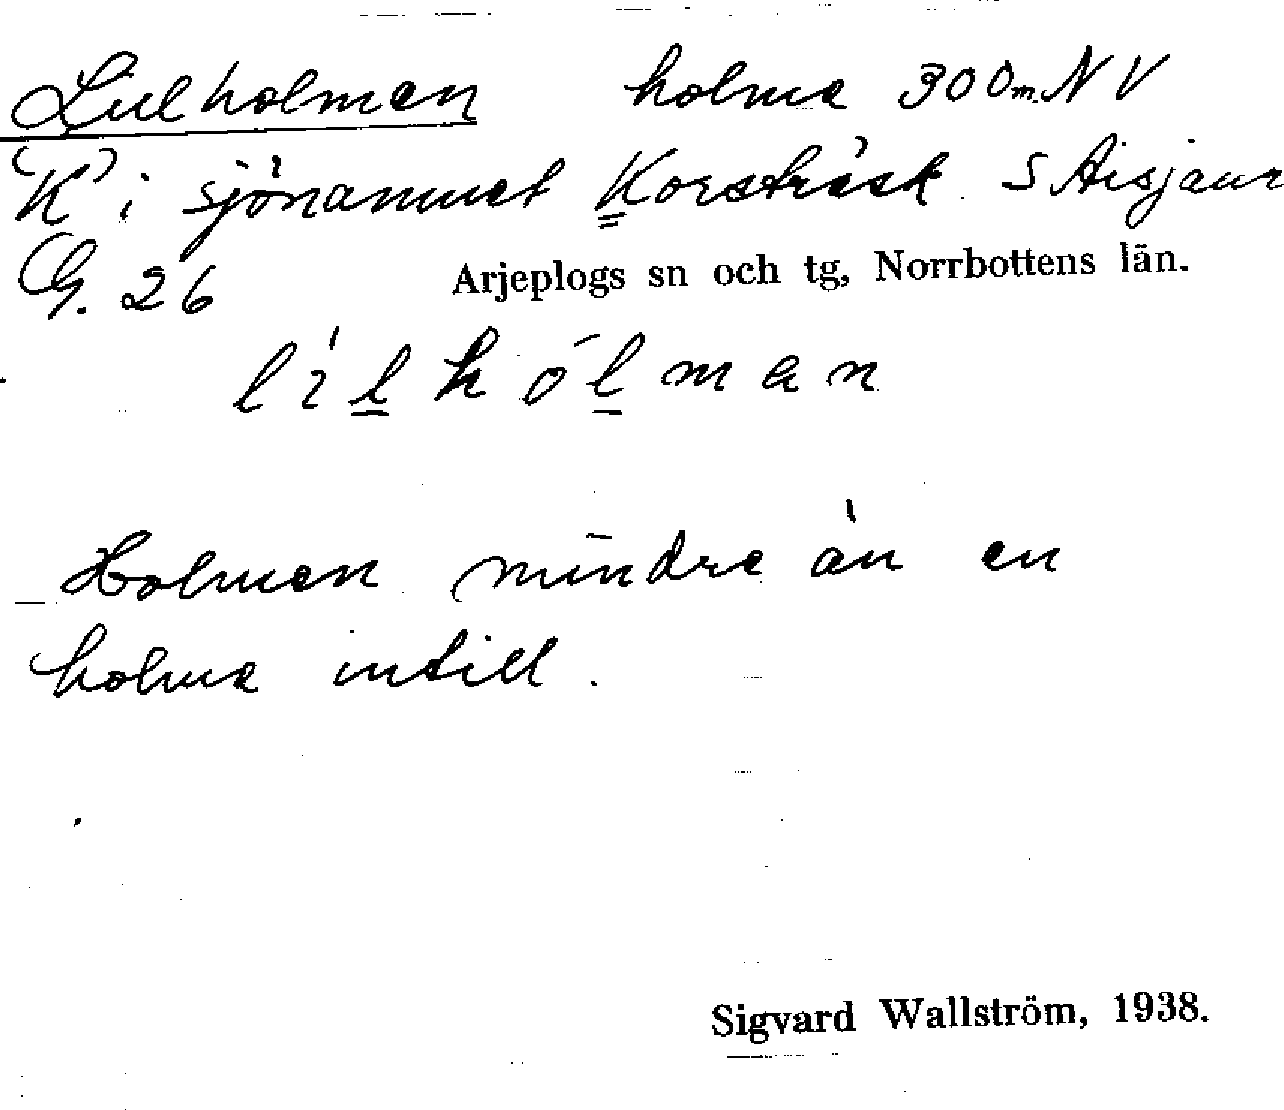 Lillholmen holme 300 m NV
"K" i sjönamnet Korsträsk S Aisjaur
G. 26 Arjeplogs sn och tg, Norrbottens län.
lilhólman
Holmen mindre än en
holme intill.
Sigvard Wallström, 1938.